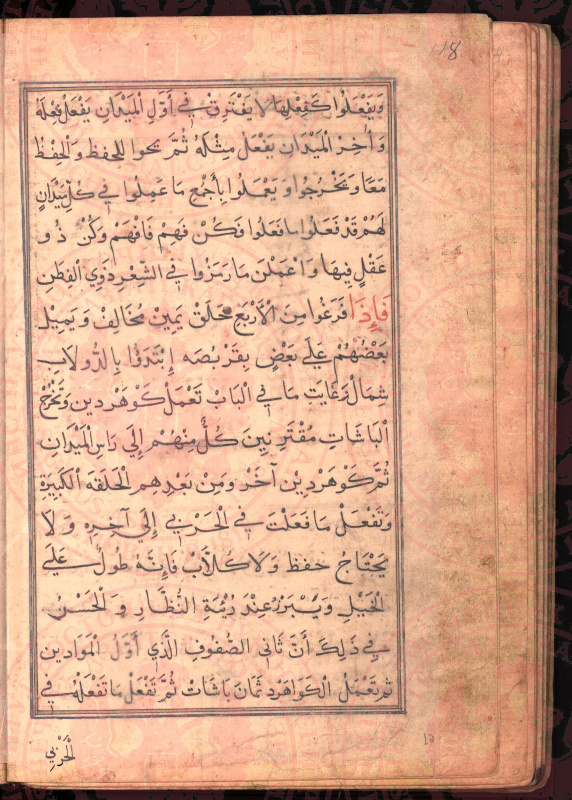 18
وَيَفْعَلُوا كَفِعْلِهَا لَا يَفْتَرِقْ فِي أَوَّلِ الْمَيْدَانِ يَفْعَلْ فِعْلَهُ
وَآخِرْ الْمَيْدَانِ يَفْعَلُ مِثْلَهُ ثُمَّ يَحوا لِلحِفظِ وَالْحِفْظُ
مَعَا وَيَخْرُجُوا وَيَعْمَلُوا بِأَجْمَعِ مَا عَمِلُوا فِي كُلِّ مَيْدَانٍ
لَهُمْ قَدْ فَعَلُوا مَا فَعَلُوا فَكُنْ فَهِمْ فَافْهَمْ وَكُنْ ذُو
عَقْلٍ فِيهَا وَاعْمَلَنْ مَا رَمَزُوا فِي الشِّعْرِ ذَوِي الْفِطَنِ
فَإِذَا فَرَغُوا مِنَ الْأَرْبَعِ حَلَقْ يَمِينْ مُخَالِفْ وَيَمِيلْ
بَعْضُهُمْ عَلَى بَعْضٍ بِقَرْبُصَه إِبْتَدَؤُا بِالدُّولَابِ
شِمَالْ بِرَعَايَتِ مَا فِي الْبَابِ تَعْمَلْ كَوَهَرْدِين وَتَخْرُجْ
الْبَاشَاتِ مُقْتَرِنِينَ كُلٌّ مِنْهُمْ إِلَى رَاسِ الْمَيْدَانِ
ثُمَّ كَوَهَرْدِيْن آخَرْ وَمِنْ بَعْدِهِم الْحَلَقَه الْكَبِيرَةِ
وَتَفْعَلْ مَا فَعَلْتَ فِي الْحَرْبِي إِلَى آخِرِهِ وَلَا
يَحْتَاجُ حفظ وَلَا كُلَّابْ فَإِنَّهُ طُولٌ عَلَى
الْخَيْلِ وَيَبْرُدُ عِنْدَ رُؤْيَةِ النُّظَّارِ وَالْحَسَنُ
فِي ذَلِكَ أَنَّ ثَانِي الصُّفُوفِ الَّذِي أَوَّلُ الْمَوَادِين
ثم تَعْمَلُ الْكَوَاهَرْد ثَمَانَ بَاشَاتْ ثُمَّ تَفْعَلْ مَا تَفْعَلْهُ فِي
الْحَرْبِي
١٥